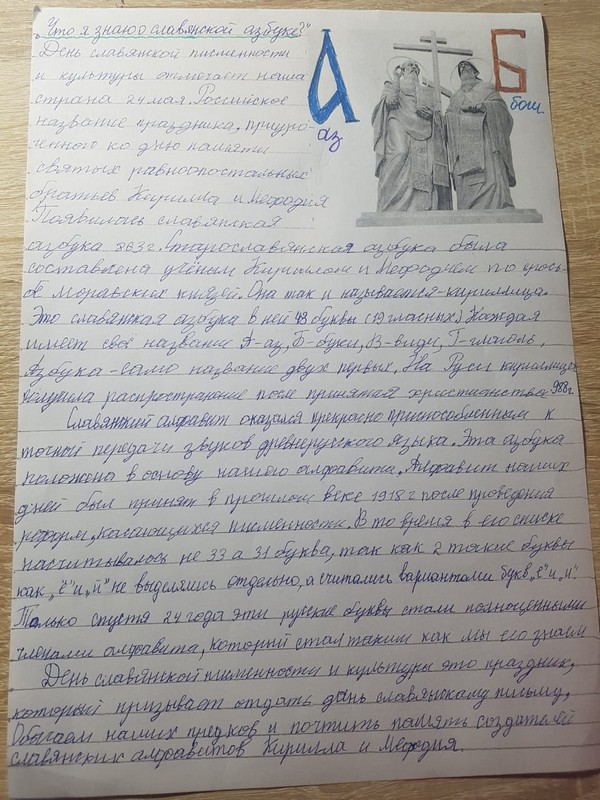 „Что я знаю о славянской азбуке?"
День славянской писменности
и культуры отмечает наша
страна 24 мая. Российское
название праздника, приуро-
ченного ко дню памяти
святых равноопостальных
братьев Кирилла и Мефодия
Появилась славянская
А
аз
Б
азбука 863 г. Старославянская азбука была
составлена учёным Кириллом и Мефодием по прось-
бе моравских князей. Она так и называется-кириллица.
Это славянская азбука в ней 43 буквы (19 гласных) Каждая
имеет своё название А-аз, Б-буки, В-види, Г-глаголь,
Азбука-само название двух первых. На Руси кириллица
получила распространие после принятия христианства 988г.
Славянский алфавит оказался прекрасно приспособленным к
точной передачи звуков древнерусского языка. Эта азбука
положена в основу нашего алфавита. Алфавит наших
дней был принят в прошлом веке 1918 г после проведения
реформ, касающихся писменности. В то время в его списке
насчитывалось не 33 а 31 буква, так как 2 такие буквы
как „ё" и „й" не выделялись отдельно, а считались вариантами букв „е" и „и".
Только спустя 24 года эти русские буквы стали полноценными
членами алфавита, который стал таким как мы его знаем
День славянской писменности и культуры это праздник,
который призывает отдать дань славянскому письму.
наших предков и почтить память создателей
славянских алфавитов Кирилла и Мефодия.